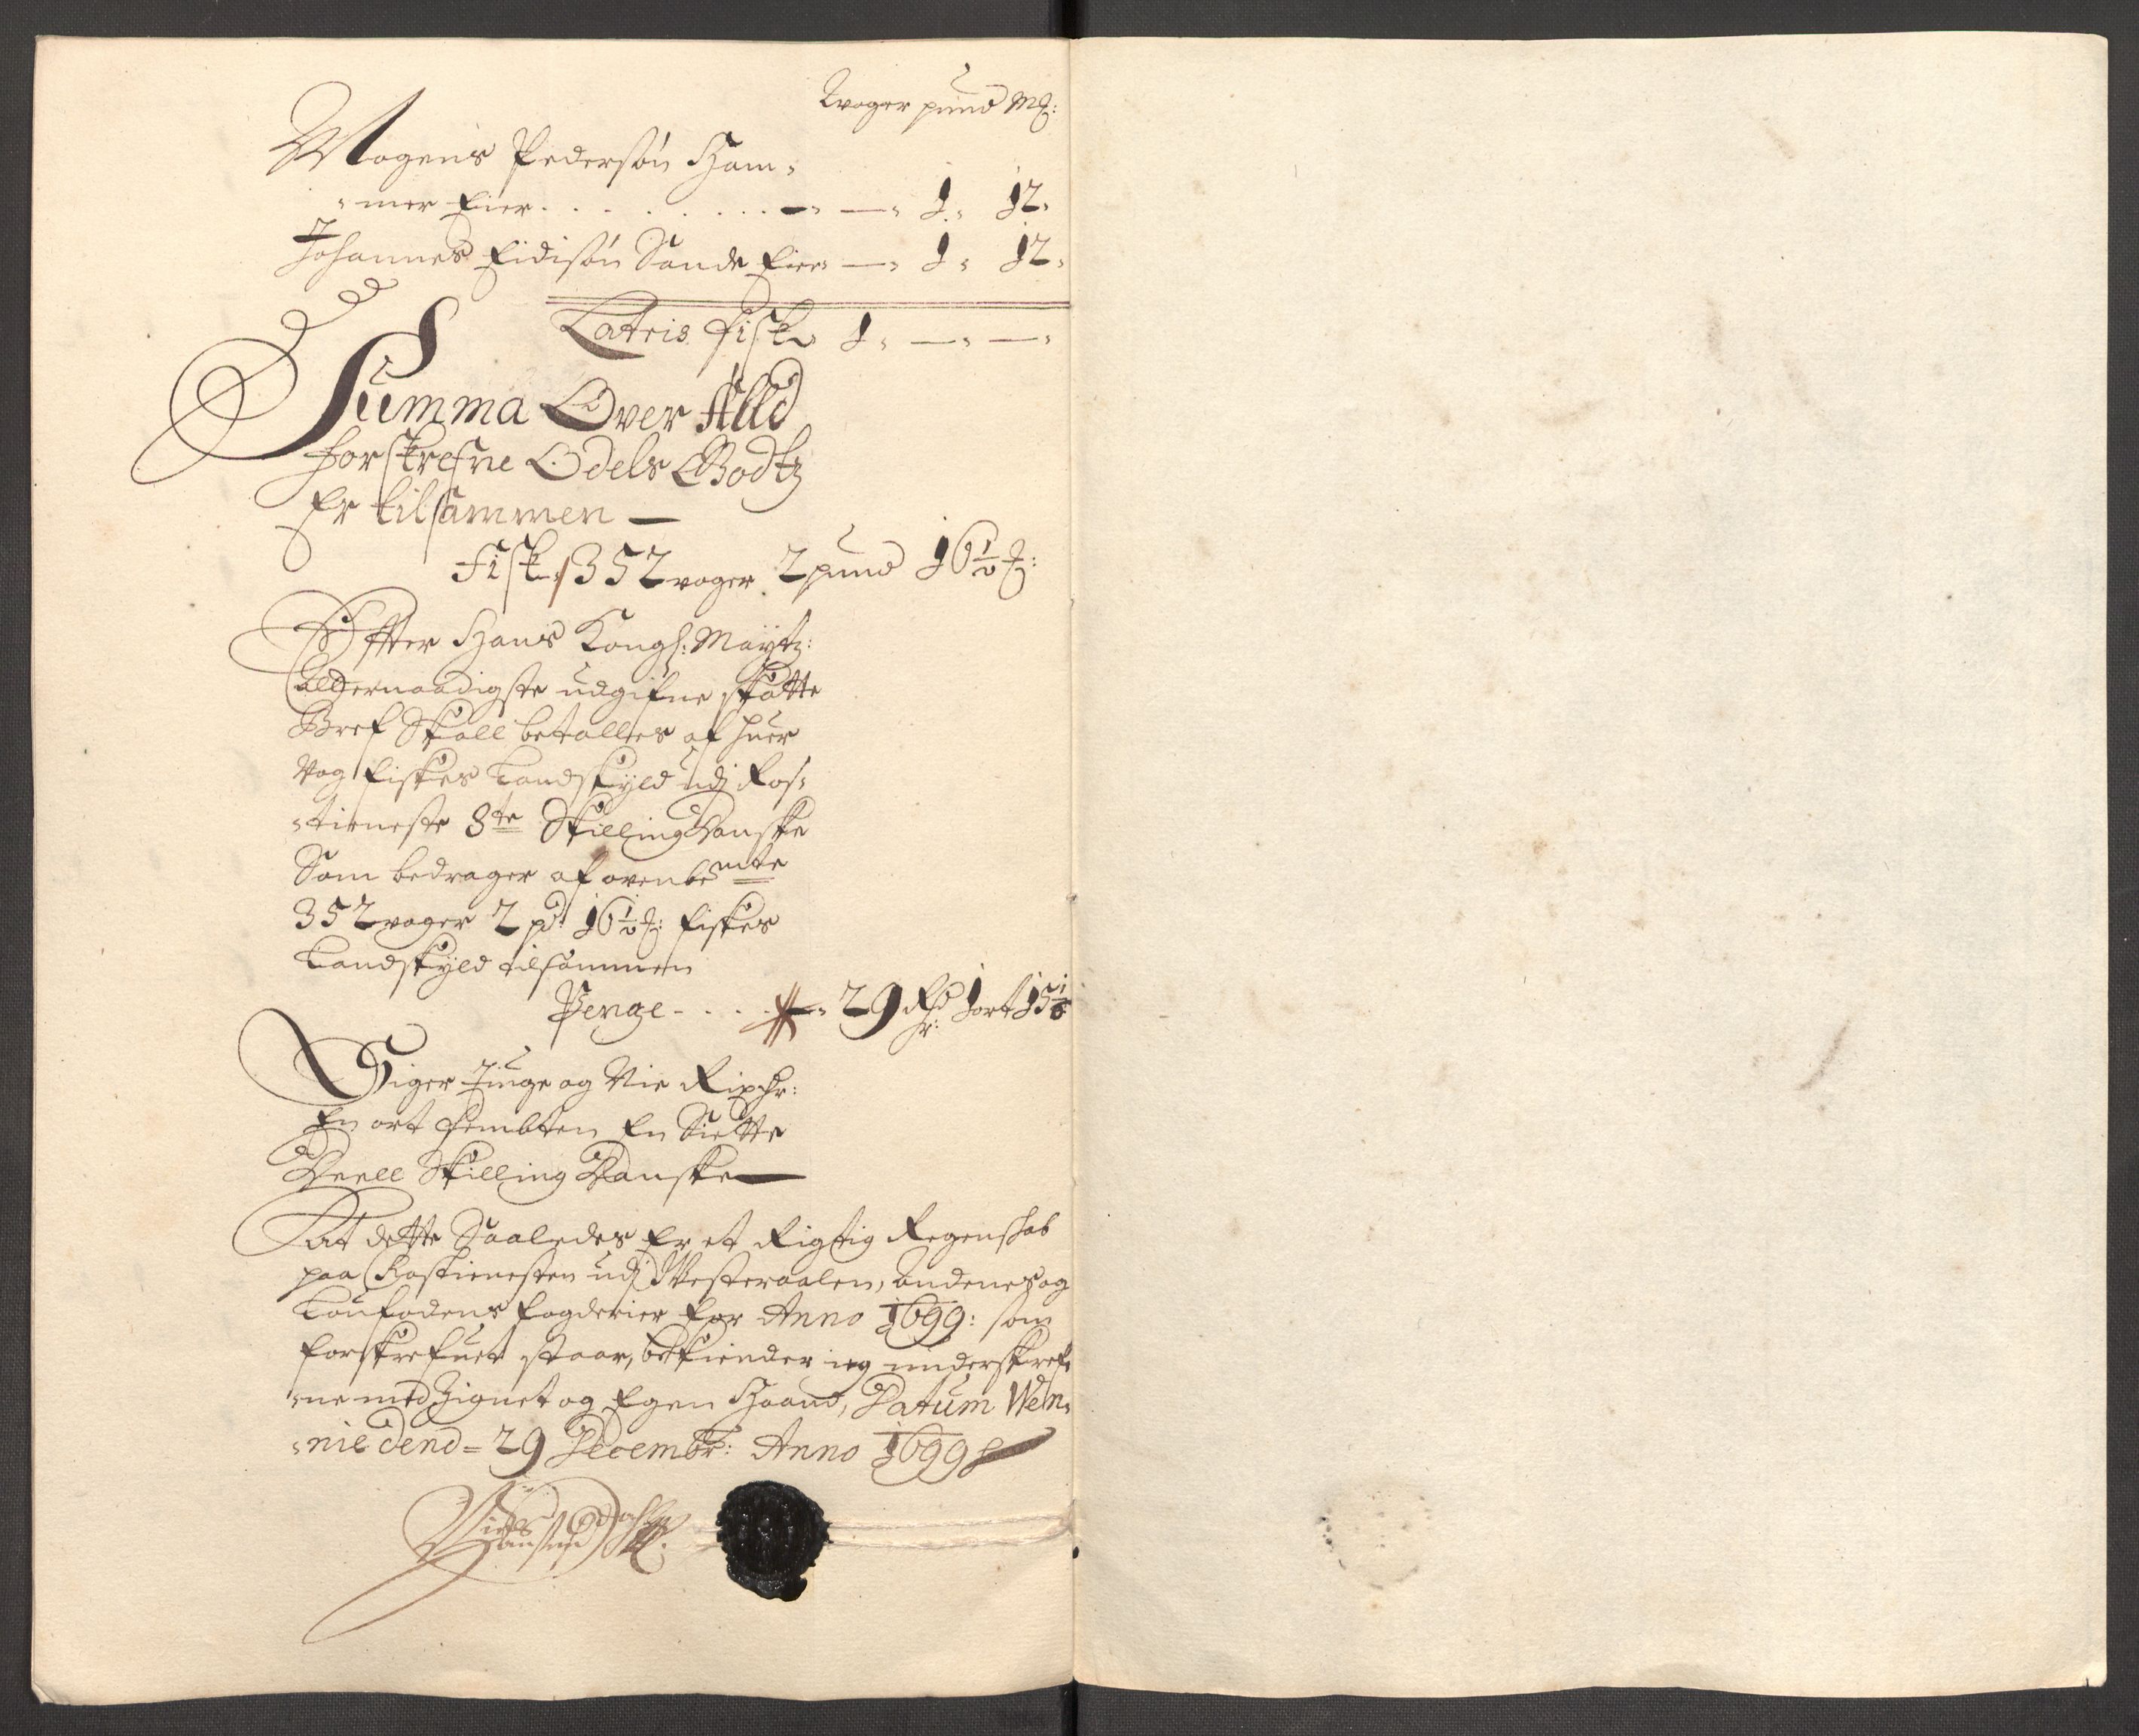 Woger pund ℳ:
Mogens Pedersøn Ham-
-mer Eier . . . . . . . . . — 1. 12.
Johannes Eidisøn Sande Eier — 1. 12.
Latris Fisk 1. — —
Summa Over Alld
forskrefne Odels Godtz
Er tilsammen —
Fisk 352 woger 2 pund 16½ ℳ:
Effter Hans Kongl: Maÿtz:
allernaadigste udgifne skatte
Bref Skall betalles af huer
Vog fiskes Landskÿld udj Ros-
-tieneste 8te Skilling Danske
Som bedrager af ovenbemte
352 woger 2 pd 16½ ℳ: fiskes
Landskÿld tilsammen
Penge - . . . 29 Rdr: 1 ort 15 1/6
Siger Tiuge og Nie Rixdr:
En ort Fembten En Siette
Deell Skilling Danske —
At dette Saaledes Er et Rigtig Regenskab
paa Rostienesten udj Westeraalen, Andenes og
Loufodens fogderier for Anno 1699: som
forskrefuet staar, bekiender ieg underskref-
-ne med Zignet og Egen Haand, Datum Wen-
-nie dend = 29 Decembr: Anno 1699
Niels